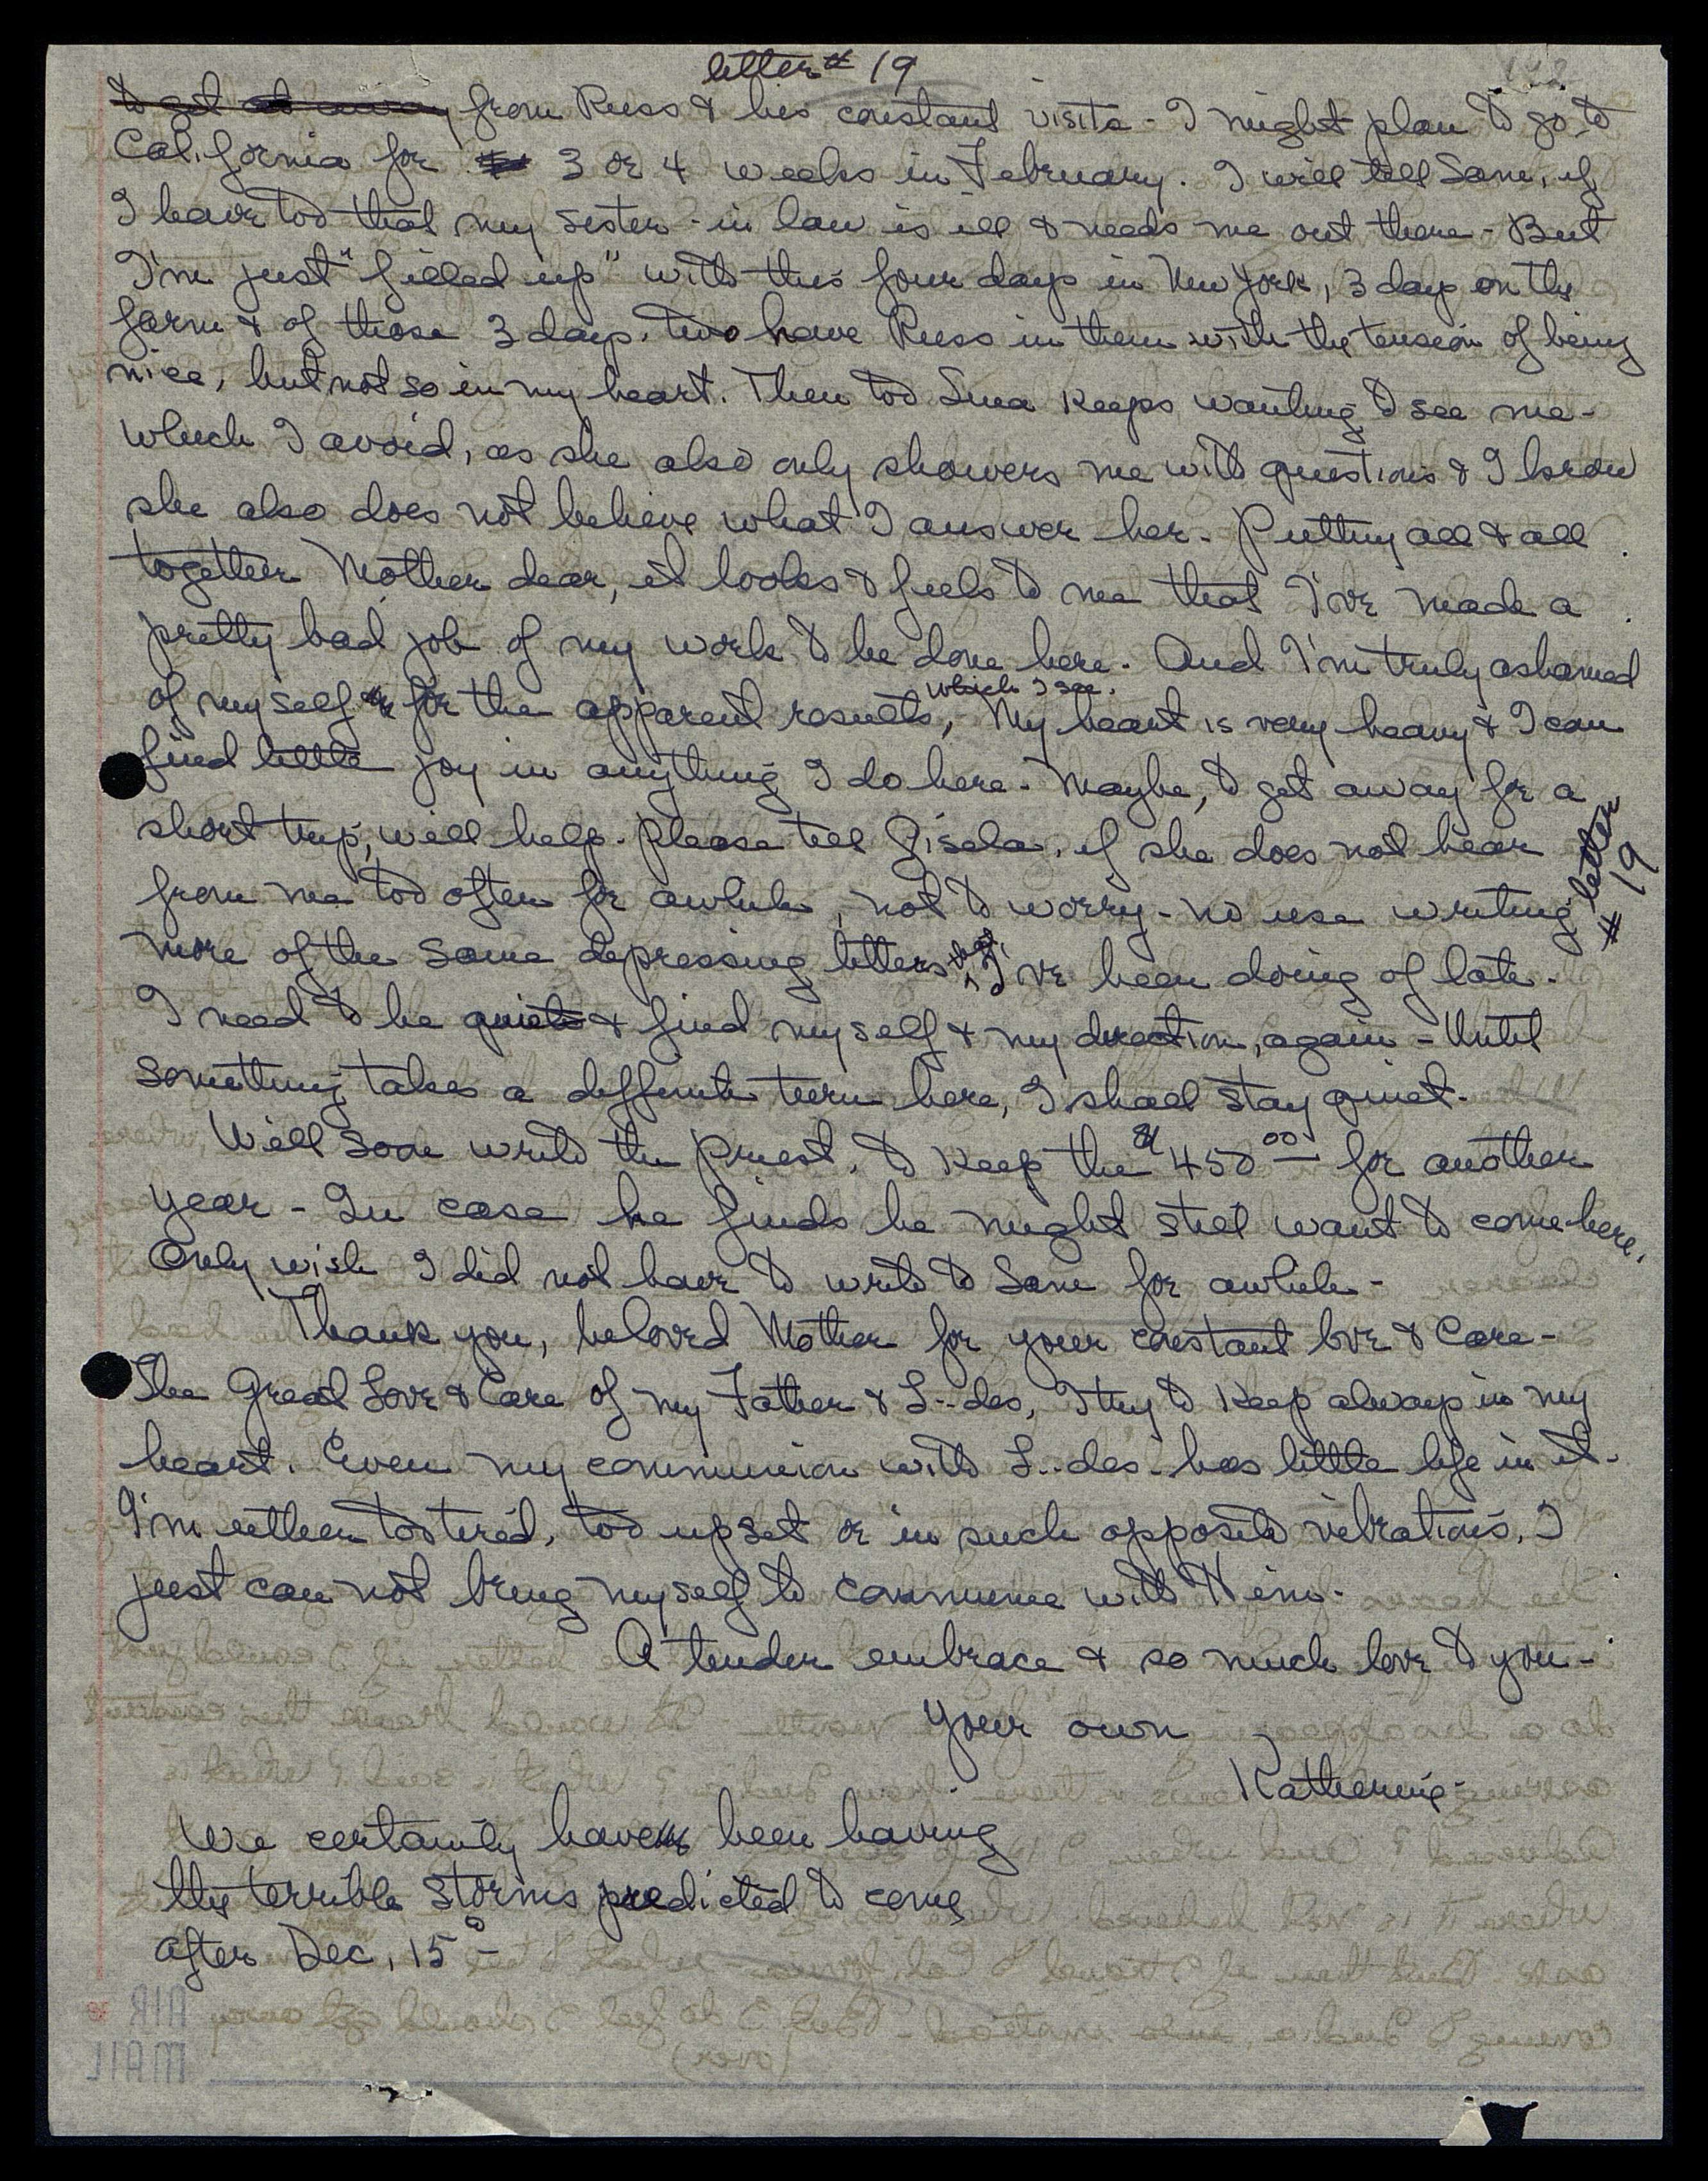 letter # 19
to get away from Russ & his constant visits - I might plan to go to
California for 3 or 4 weeks in February. I will tell Sam, if
I have too that my sister-in law is ill & needs me out there - But
I'm just "filled up" with this four days in New York, 3 days on the
farm & of those 3 days, two have Russ in them with the tension of being
nice, but not so in my heart. Then too keeps wanting to see me -
which I avoid, as she also only showers me with questions & I know
she also does not believe what I answer her. Putting all & all
together Mother dear, it looks & feels to me that I've made a
pretty bad job of my work to be done here. And I'm truly ashamed
of myself for the apparent results, which I see. My heart is very heavy & I can
find little joy in anything I do here. Maybe, to get away for a
short trip, will help. Please tell Gisela, if she does not hear
from me too often for awhile, not to worry - no use writing
more of the same depressing letters that I've been doing of late.
letter
# 19
I need to be quiet & find myself & my direction, again - Until
something takes a deffinite turn here, I shall stay quiet.
Will soon write the Priest, to keep the $450.00 for another
year - In case he finds he might still want to come here.
Only wish I did not have to write to Sam for awhile -
Thank you, beloved Mother for your constant love & Care -
The Great Love & Care of my Father & L--des, I try to keep always in my
heart. Even my communion with L--des - has little life in it.
I'm either too tired, too upset or in such opposite vibrations, I
just can not bring myself to commune with Him.
A tender embrace & so much love to you -
Your own
Katherine -
We certainly have been having
the terrible storms predicted to come
after Dec, 15 -
AIR
MAIL
(over)